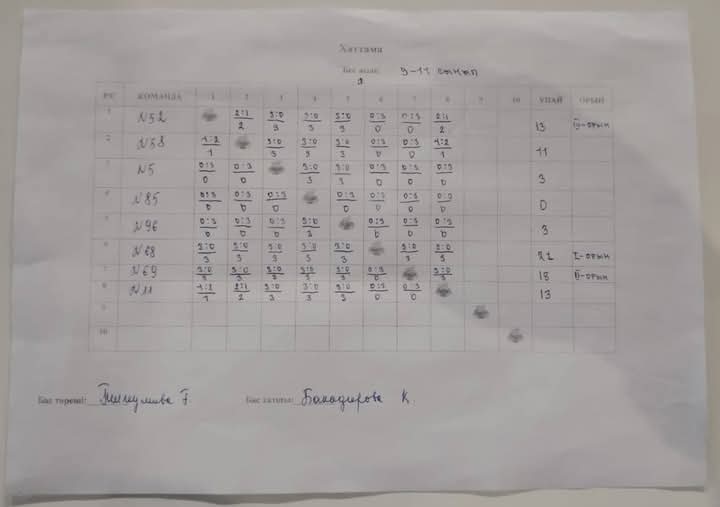 Хаттама
Бес асық 9-11 сынып
РС КОМАНДА 1 2 3 4 5 6 7 8 9 10 ҰПАЙ ОРЫН
1 №52 2:1/2 3:0/3 3:0/3 3:0/3 0:3/0 0:3/0 2:1/2 13 III-орын
2 №58 1:2/1 3:0/3 3:0/3 3:0/3 0:3/0 0:3/0 1:2/1 11
3 №5 0:3/0 0:3/0 3:0/3 3:0/3 0:3/0 0:3/0 0:3/0 3
4 №85 0:3/0 0:3/0 0:3/0 0:3/0 0:3/0 0:3/0 0:3/0 0
5 №96 0:3/0 0:3/0 0:3/0 3:0/3 0:3/0 0:3/0 0:3/0 3
6 №68 3:0/3 3:0/3 3:0/3 3:0/3 3:0/3 3:0/3 3:0/3 21 I-орын
7 №69 3:0/3 3:0/3 3:0/3 3:0/3 3:0/3 0:3/0 3:0/3 18 II-орын
8 №11 1:2/1 2:1/2 3:0/3 3:0/3 3:0/3 0:3/0 0:3/0 13
9
10
Бас төреші: Бас хатшы: Баходирова К